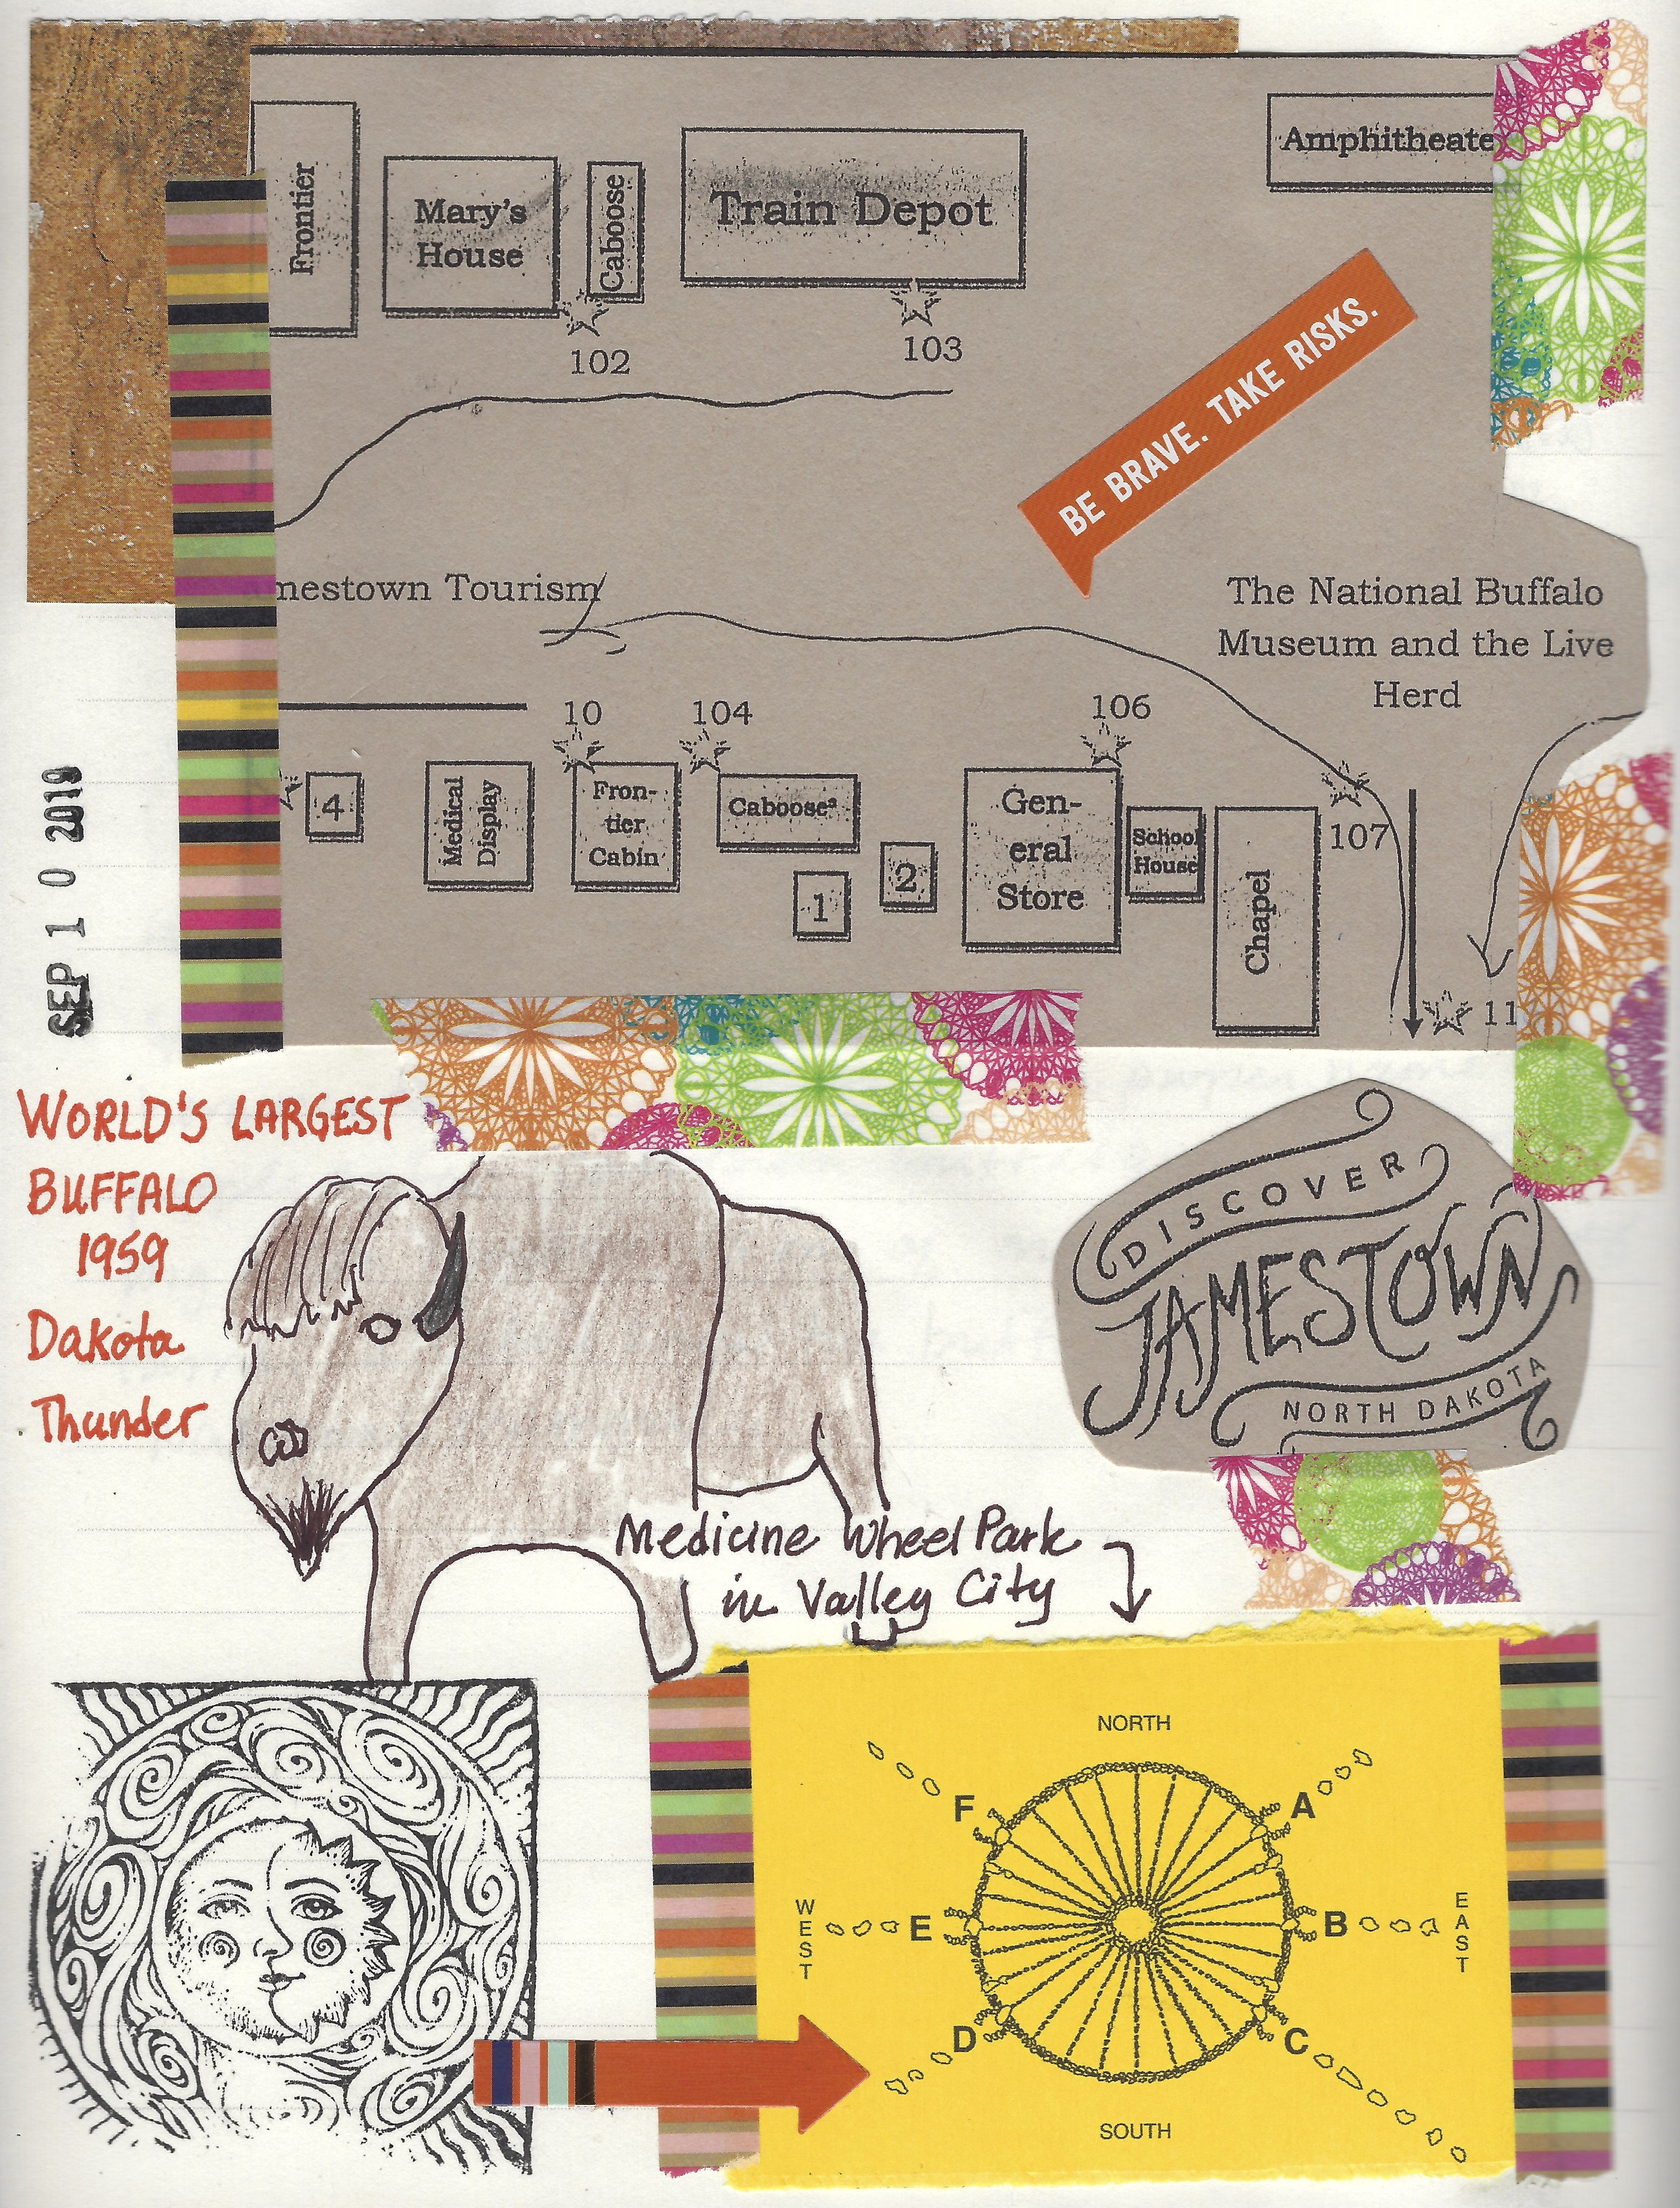 Frontier
Mary's
House
Caboose
Train Depot
Amphitheate
102
103
BE BRAVE. TAKE RISKS.
mestown Tourism
The National Buffalo
Museum and the Live
Herd
10
104
106
4
Medical
Display
Fron-
tier
Cabin
Caboose
1
2
Gen-
eral
Store
School
House
Chapel
107
11
SEP 10 2019
WORLD'S LARGEST
BUFFALO
1959
Dakota
Thunder
DISCOVER
JAMESTOWN
NORTH DAKOTA
Medicine Wheel Park
in Valley City
NORTH
F
A
WEST
E
B
EAST
D
C
SOUTH